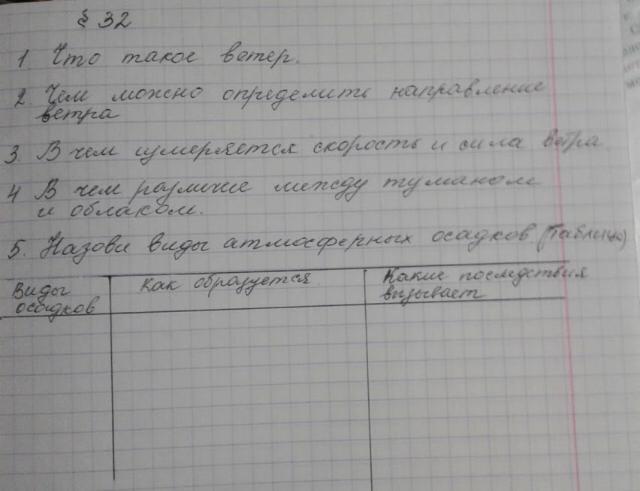 § 32
1 Что такое ветер.
2 Чем можно определить направление
ветра
3. В чем измеряется скорость и сила ветра
4 В чем различие между туманом
и облаком.
5. Назови виды атмосферных осадков (таблица)
Виды осадков
Как образуется
Какие последствия вызывает